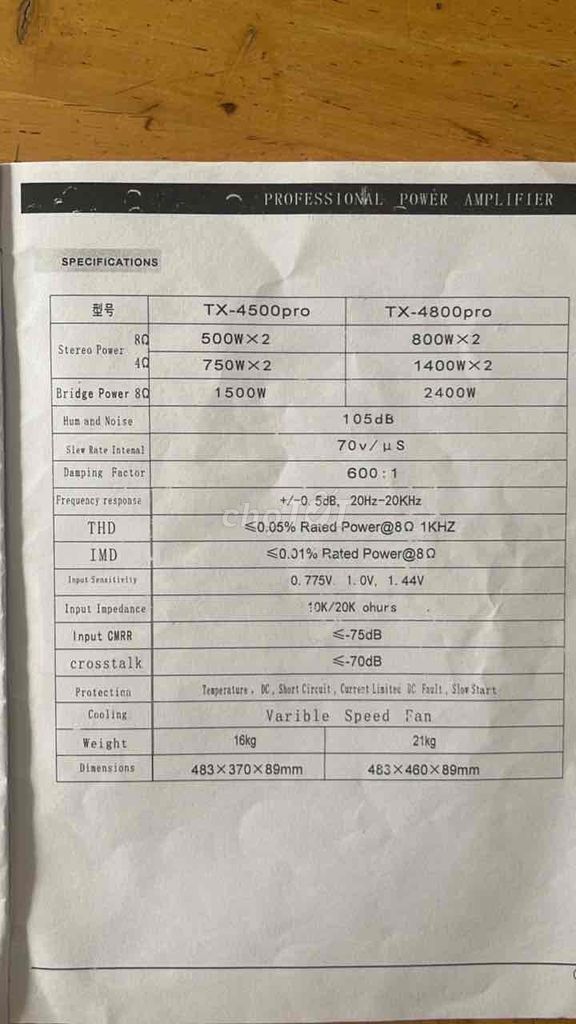 PROFESSIONAL POWER AMPLIFIER
SPECIFICATIONS
型号 TX-4500pro TX-4800pro
Stereo Power 8Ω 500W×2 800W×2
4Ω 750W×2 1400W×2
Bridge Power 8Ω 1500W 2400W
Hum and Noise 105dB
Slew Rate Intemal 70v/μS
Damping Factor 600:1
Frequency response +/-0.5dB, 20Hz-20KHz
chợTỐT
THD ≤0.05% Rated Power@8Ω 1KHZ
IMD ≤0.01% Rated Power@8Ω
Input Sensitivity 0.775V. 1.0V, 1.44V
Input Impedance 10K/20K ohurs
Input CMRR ≤-75dB
crosstalk ≤-70dB
Protection Temperature, DC, Short Circuit, Current Limited DC Fault, Slow Start
Cooling Varible Speed Fan
Weight 16kg 21kg
Dimensions 483×370×89mm 483×460×89mm